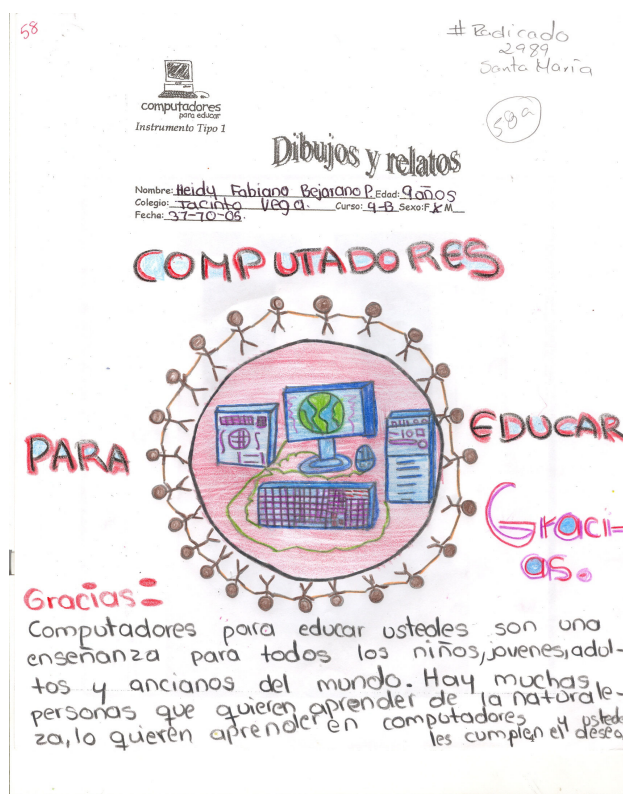 58
# Radicado
2989
Santa María
58a
computadores
para educar
Instrumento Tipo 1
Dibujos y relatos
Nombre: Heidy Fabiana Bejarano P. Edad: 9 años
Colegio: Jacinto Vega. Curso: 4-B Sexo: F X M
Fecha: 31-10-05.
COMPUTADORES
PARA
EDUCAR
Graci-
as.
Gracias:
Computadores para educar ustedes son una
enseñanza para todos los niños, jovenes, adul-
tos y ancianos del mundo. Hay muchas
personas que quieren aprender de la naturale-
za, lo quieren aprender en computadores y ustede
les cumplen el deseo